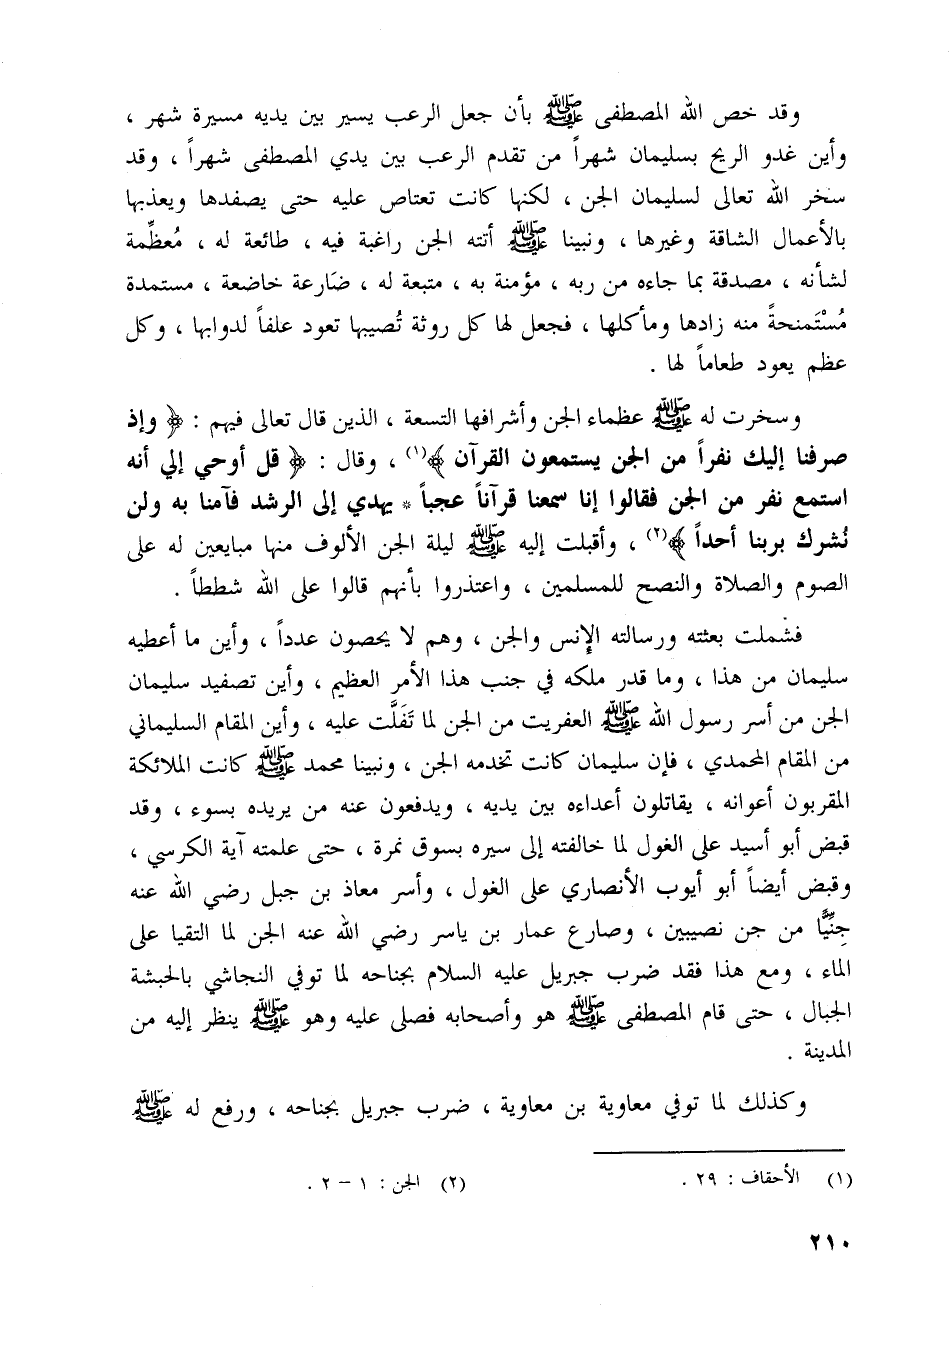 وقد خص الله المصطفى ﷺ بأن جعل الرعب يسير بين يديه مسيرة شهر ،
وأين غدو الريح بسليمان شهراً من تقدم الرعب بين يدي المصطفى شهراً ، وقد
سخر الله تعالى لسليمان الجن ، لكنها كانت تعتاص عليه حتى يصفدها ويعذبها
بالأعمال الشاقة وغيرها ، ونبينا ﷺ أتته الجن راغبة فيه ، طائعة له ، مُعظِّمة
لشأنه ، مصدقة بما جاءه من ربه ، مؤمنة به ، متبعة له ، ضَارعة خاضعة ، مستمدة
مُسْتَمنحةً منه زادها ومأكلها ، فجعل لها كل روثة تُصيبها تعود علفاً لدوابها ، وكل
عظم يعود طعاماً لها .
وسخرت له ﷺ عظماء الجن وأشرافها التسعة ، الذين قال تعالى فيهم : ﴿ وإذ
صرفنا إليك نفراً من الجن يستمعون القرآن ﴾(١) ، وقال : ﴿ قل أوحي إلي أنه
استمع نفر من الجن فقالوا إنا سمعنا قرآناً عجباً * يهدي إلى الرشد فآمنا به ولن
نُشرك بربنا أحداً ﴾(٢) ، وأقبلت إليه ﷺ ليلة الجن الألوف منها مبايعين له على
الصوم والصلاة والنصح للمسلمين ، واعتذروا بأنهم قالوا على الله شططاً .
فشملت بعثته ورسالته الإنس والجن ، وهم لا يحصون عدداً ، وأين ما أعطيه
سليمان من هذا ، وما قدر ملكه في جنب هذا الأمر العظيم ، وأين تصفيد سليمان
الجن من أسر رسول الله ﷺ العفريت من الجن لما تَفَلَّت عليه ، وأين المقام السليماني
من المقام المحمدي ، فإن سليمان كانت تخدمه الجن ، ونبينا محمد ﷺ كانت الملائكة
المقربون أعوانه ، يقاتلون أعداءه بين يديه ، ويدفعون عنه من يريده بسوء ، وقد
قبض أبو أسيد على الغول لما خالفته إلى سيره بسوق نمرة ، حتى علمته آية الكرسي ،
وقبض أيضاً أبو أيوب الأنصاري على الغول ، وأسر معاذ بن جبل رضي الله عنه
جِنِّيًّا من جن نصيبين ، وصارع عمار بن ياسر رضي الله عنه الجن لما التقيا على
الماء ، ومع هذا فقد ضرب جبريل عليه السلام بجناحه لما توفي النجاشي بالحبشة
الجبال ، حتى قام المصطفى ﷺ هو وأصحابه فصلى عليه وهو ﷺ ينظر إليه من
المدينة .
وكذلك لما توفي معاوية بن معاوية ، ضرب جبريل بجناحه ، ورفع له ﷺ
(١) الأحقاف : ٢٩ .
(٢) الجن : ١ – ٢ .
٢١٠